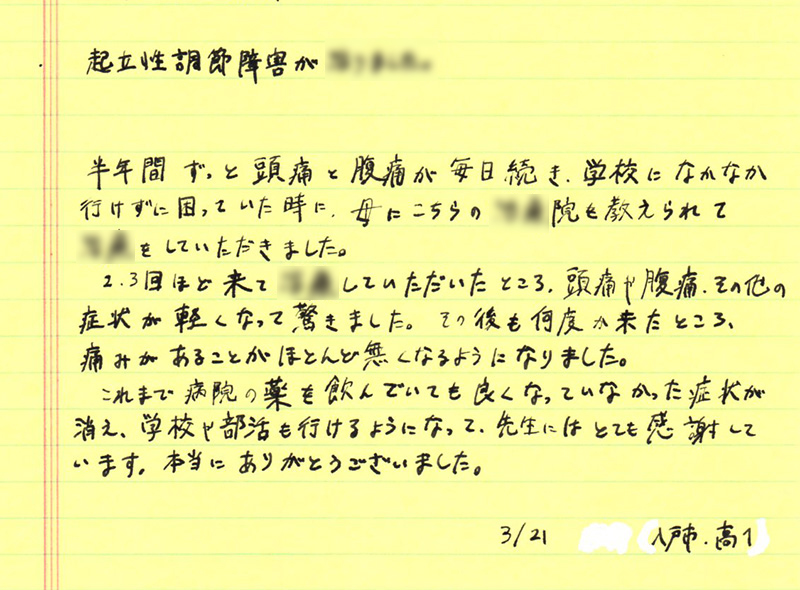 起立性調節障害が
半年間 ずっと 頭痛と腹痛が 毎日続き、学校に なかなか
行けずに困っていた時に、母にこちらの 院を教えられて
をしていただきました。
2.3回ほど来て していただいたところ、頭痛や腹痛、その他の
症状が 軽くなって驚きました。その後も何度か来たところ、
痛みがあることがほとんど無くなるようになりました。
これまで病院の薬を飲んでいても良くなっていなかった症状が
消え、学校や部活も行けるようになって、先生にはとても感謝して
います。本当にありがとうございました。
3/21 (八戸市.高1)